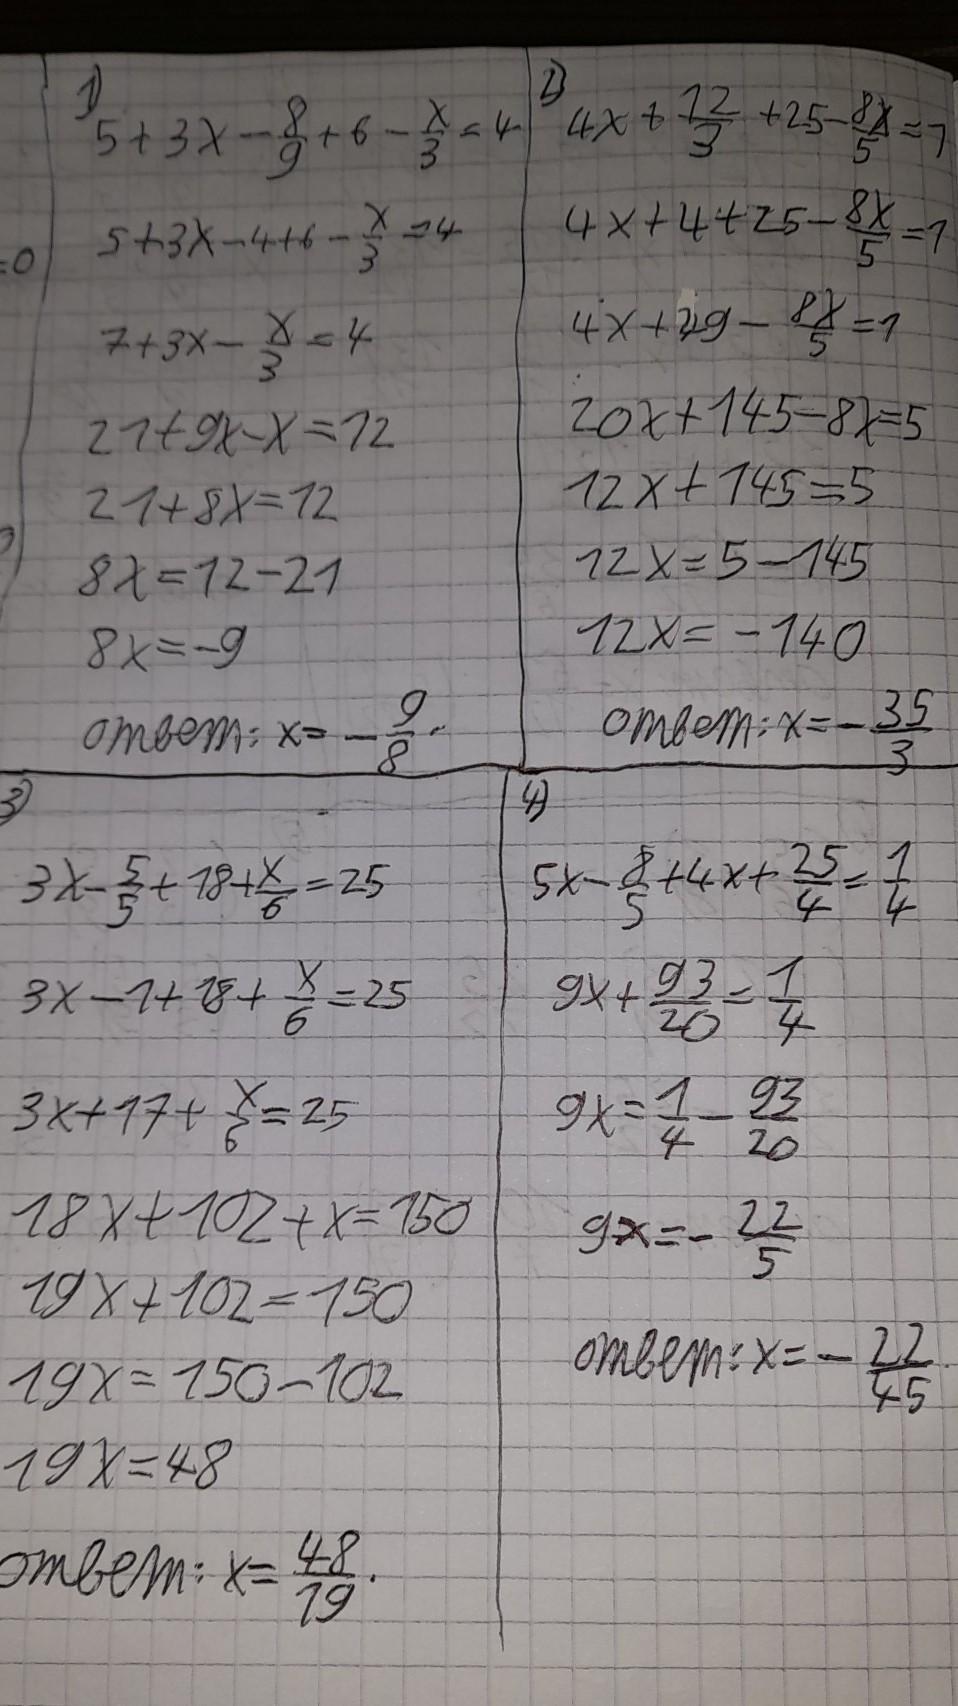 1)
5+3x-8/9+6-x/3=4
5+3x-4+6-x/3=4
7+3x-x/3=4
21+9x-x=12
21+8x=12
8x=12-21
8x=-9
ответ: x=-9/8.
2)
4x+12/3+25-8x/5=1
4x+4+25-8x/5=1
4x+29-8x/5=1
20x+145-8x=5
12x+145=5
12x=5-145
12x=-140
ответ: x=-35/3
3)
3x-5/5+18+x/6=25
3x-1+18+x/6=25
3x+17+x/6=25
18x+102+x=150
19x+102=150
19x=150-102
19x=48
ответ: x=48/19.
4)
5x-8/5+4x+25/4=1/4
9x+93/20=1/4
9x=1/4-93/20
9x=-22/5
ответ: x=-22/45.
=0